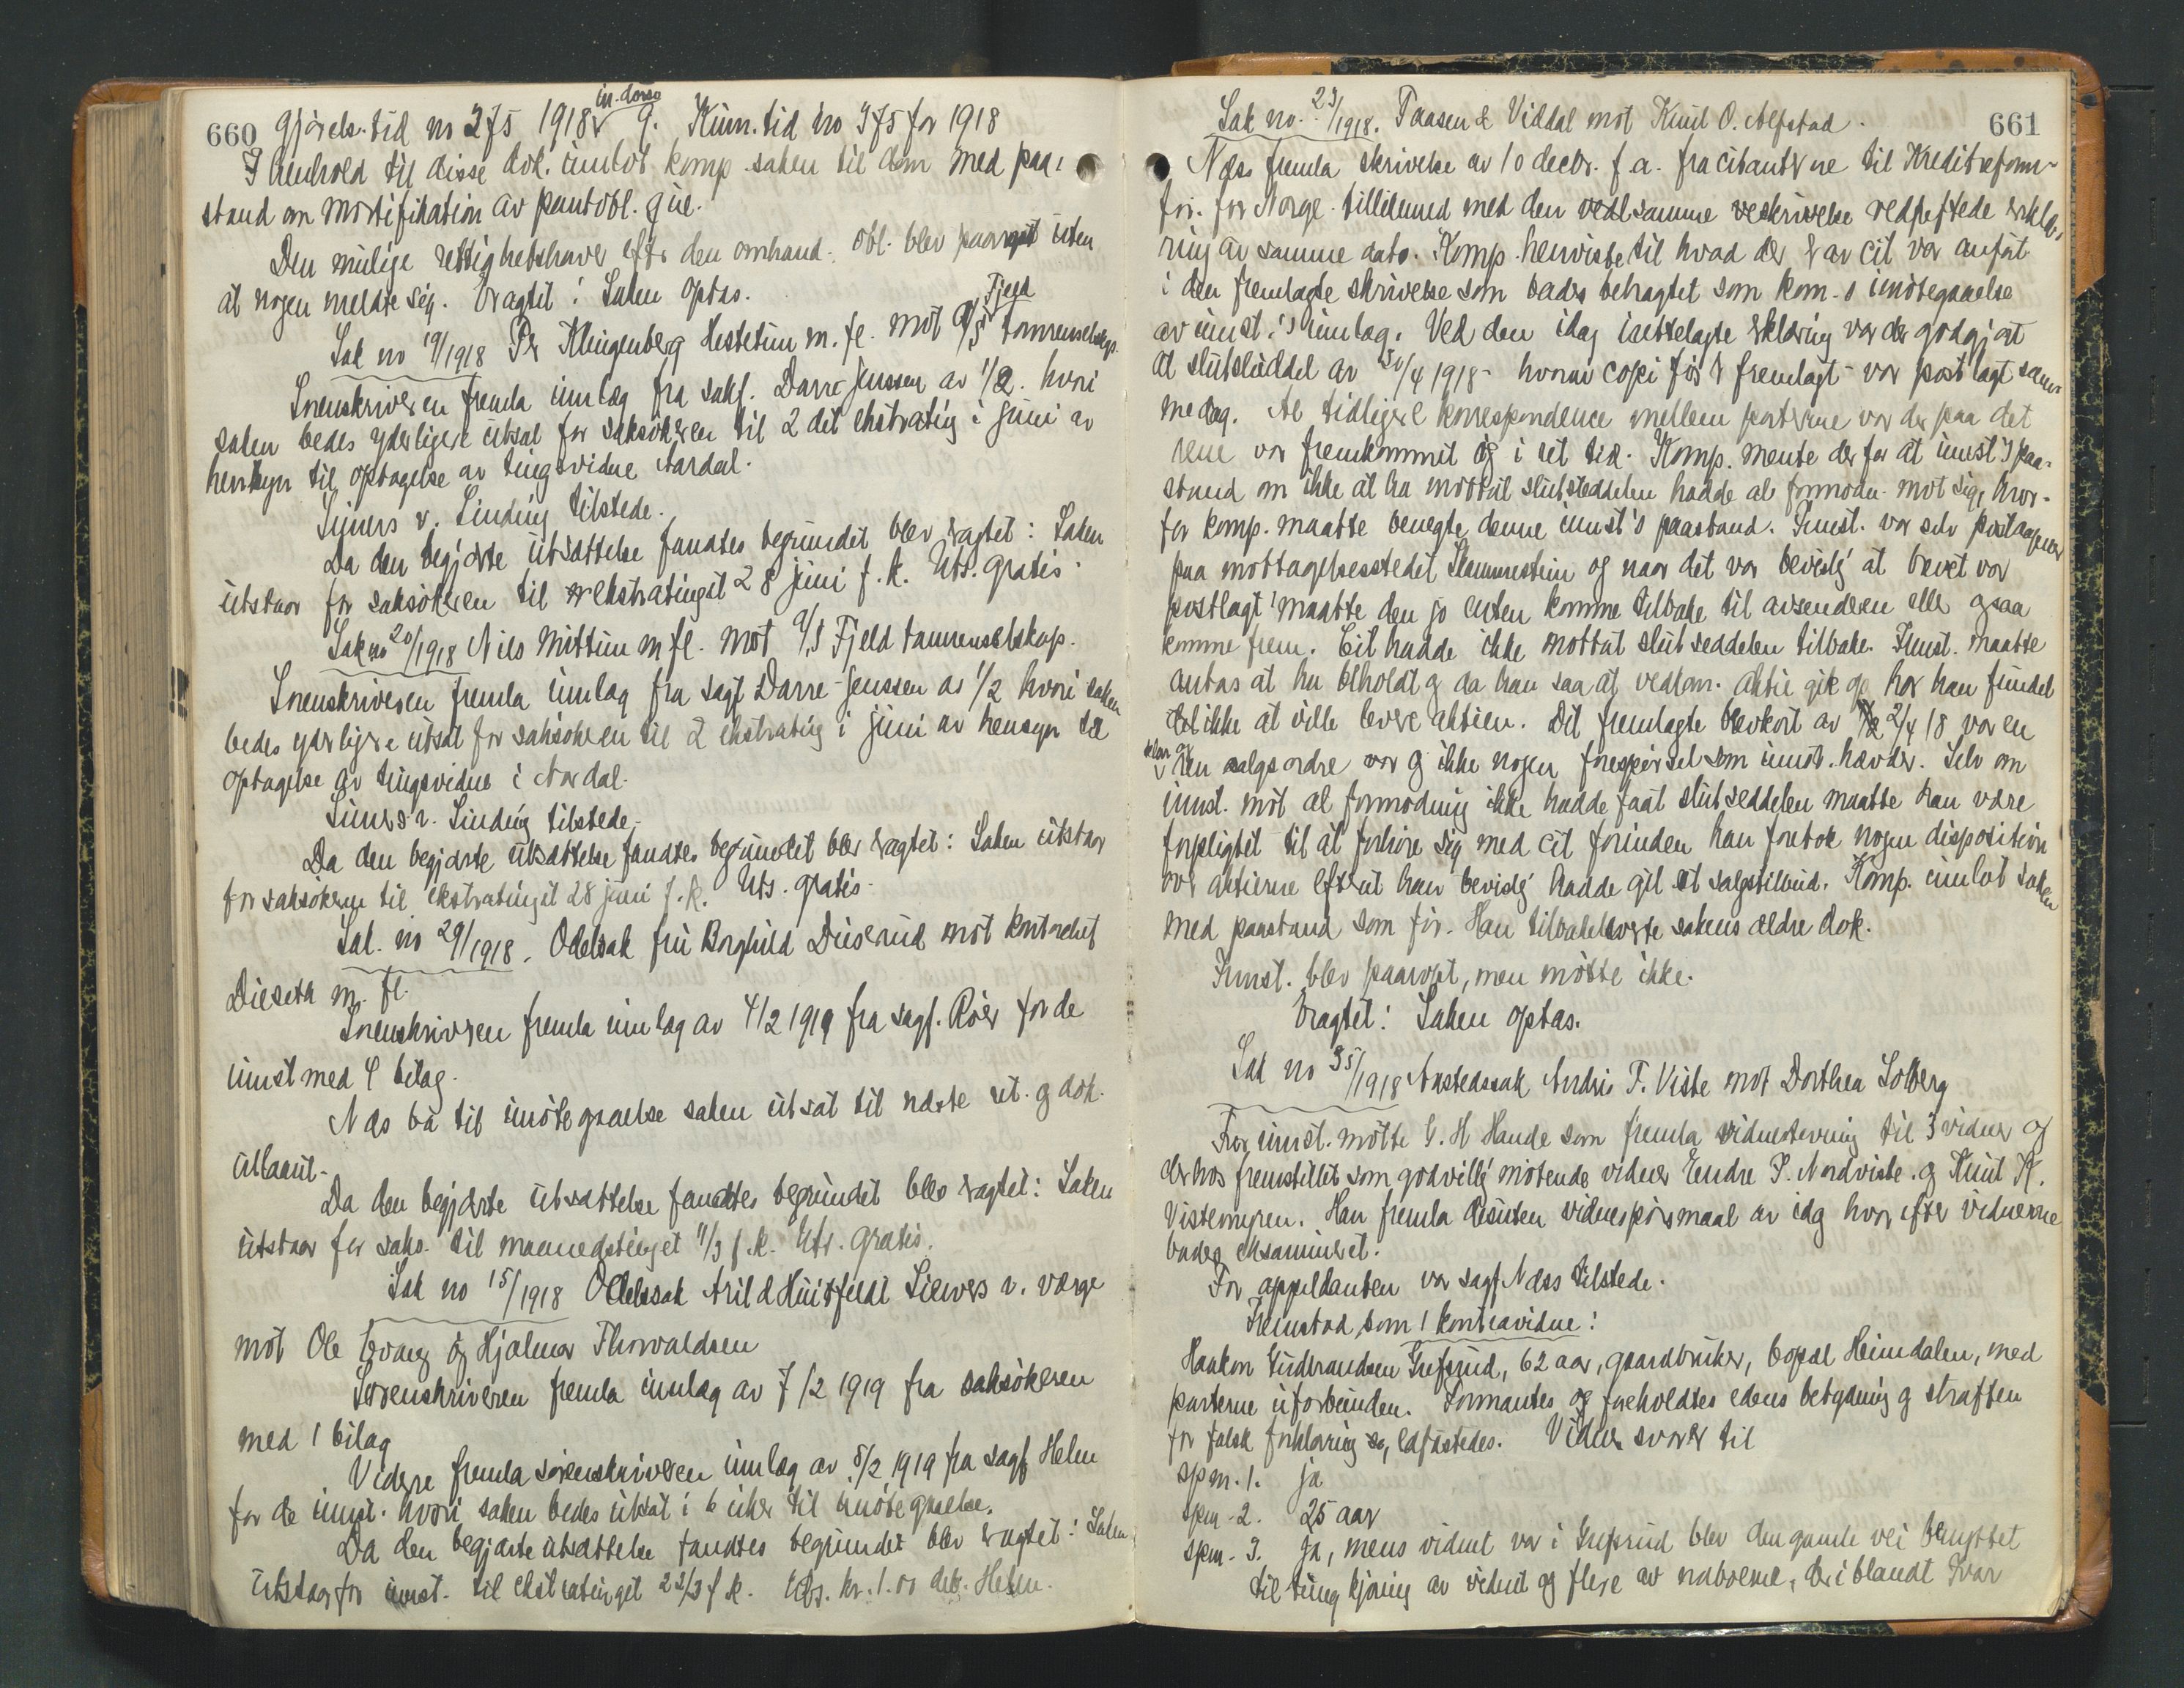 660 gjörels.tid no 275 1918 in dorso 9. Kun.tid no 375 for 1918
I henhold til disse dok. inlot komp. saken til dom med paa-
stand om mortifikation av pantobl. gjel.
Den mulige rettighetshaver efter den omhand. obl. blev paaropt uten
at nogen meldte sig. Eragtet: Saken optas.
Sak no 19/1918 Per Klingenberg Hestetun m. fl. mot A/S Fjeld tømmerselskap.
Sorenskriveren fremla innlæg fra sakf. Darre Jenssen av 1/2. hvori
saken bedes yderligere utsat for saksökeren til 2det ekstrating i juni av
hensyn til optagelse av tingsvidne Aardal.
Siewers v. Linding tilstede.
Da den begjærte utsættelse fandtes begrundet blev eragtet: Saken
utstaar for saksökeren til ekstratinget 28 juni f. k. Uts. gratis.
Sak no 20/1918 Nils Mittun m fl. mot A/S Fjeld tømmerselskap.
Sorenskriveren fremla innlæg fra sagf Darre-Jenssen av 1/2 hvori saken
bedes yderligere utsat for saksökeren til 2 ekstrating i juni av hensyn til
optagelse av tingsvidne i Aardal.
Siewers v. Linding tilstede.
Da den begjærte utsættelse fandtes begrundet blev eragtet: Saken utstaar
for saksökeren til ekstratinget 28 juni f. k. Uts. gratis.
Sak. no 29/1918. Odelssak fru Borghild Dieserud mot kontorchef
Dieseth m. fl.
Sorenskriveren fremla innlæg av 4/2 1919 fra sagf. Röer for de
innst med 4 bilag.
Næs ba til imötegaaelse saken utsat til næste ret. g dok.
utlaant.
Da den begjærte utsættelse fandtes begrundet blev eragtet: Saken
utstaar for saks. til maanedstinget 11/3 f. k. Uts. gratis.
Sak no 15/1918 Odelssak Arild Huitfeldt Siewers v. verge
mot Ole Evang og Hjalmar Thorvaldsen
Sorenskriveren fremla innlæg av 7/2 1919 fra saksökeren
med 1 bilag
Videre fremla sorenskriveren innlæg av 8/2 1919 fra sagf Helm
for de innst. hvori saken bedes utsat i 6 uker til imötegaaelse.
Da den begjærte utsættelse fandtes begrundet blev eragtet: Saken
utstaar for innst. til ekstratinget 22/3 f. k. Uts. kr. 1.00 deb. Helm.
661
Sak no. 23/1918. Faasen & Viddal mot Knut O. Alfstad.
Næss fremla skrivelse av 10 decbr. f. a. fra citanterne til Kreditreform-
for. for Norge tillikemed den vedk samme skrivelse vedheftede erklæ-
ring av samme dato. Komp. henviste til hvad der er av cit var anført
i den fremlagte skrivelse som bedes betragtet som kom-s imötegaaelse
av innst.'s innlæg. Ved den idag irettelagte erklæring var det godgjort
at slutseddel av 30/4 1918 - hvorav copi för er fremlagt - var postlagt sam-
me dag. Al tidligere korrespondence mellem parterne var der paa det
rene var fremkommet og i ret tid. Komp. mente derfor at innst's paa-
stand om ikke at ha mottat slutseddelen hadde al formodn. mot sig, hvor-
for komp. maatte benegte denne innst's paastand. Innst. var selv postaapner
paa mottagelsesstedet Skammestein og naar det var bevislig at brevet var
postlagt maatte den jo enten komme tilbake til avsenderen eller ogsaa
komme frem. Cit hadde ikke mottat slutseddelen tilbake. Innst. maatte
antas at ha beholdt g da han saa at vedkom. aktie gik op har han fundet
det ikke at ville levere aktien. Det fremlagte brevkort av 2/4 18 var en
klar g ren salgsordre var g ikke nogen forespörsel som innst. hævder. Selv om
innst. mot al formodning ikke hadde faat slutseddelen maatte han være
forpligtet til at forhöre sig med cit forinden han foretok nogen disposition
over aktierne efterat han bevislig hadde git et salgstilbud. Komp. innlot saken
med paastand som för. Han tilbakeleverte sakens ældre dok.
Innst. blev paaropt, men mötte ikke.
Eragtet: Saken optas.
Sak no 35/1918 Aastedssak Andris T. Viste mot Dorthea Solberg
For innst. mötte G. H Hande som fremla vidnestevning til 3 vidner og
derhos fremstillet som godvillig mötende vidner Endre P. Nordviste g Knut K.
Vistemyren. Han fremla desuten vidnespörsmaal av idag hvorefter vidnerne
bedes eksamineret.
For appellanten var sagf Næss tilstede.
Fremstod som 1 kontravidne:
Haakon Gudbrandsen Grefsrud, 62 aar, gaardbruker, bopæl Heimdalen, med
parterne uforbunden. Formantes og foreholdtes edens betydning g straffen
for falsk forklaring og edfæstedes. Vidnet svarer til
spm. 1. ja
spm. 2. 25 aar
spm. 3. Ja, mens vidnet var i Grefsrud blev den gamle vei benyttet
til tung kjöring av vidnet og flere av naboerne, deriblandt Ivar